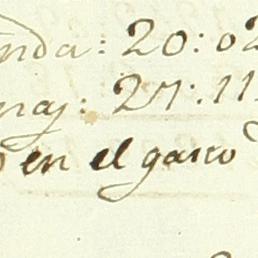 nda: 20:02
naj: 27:11
en el gasto